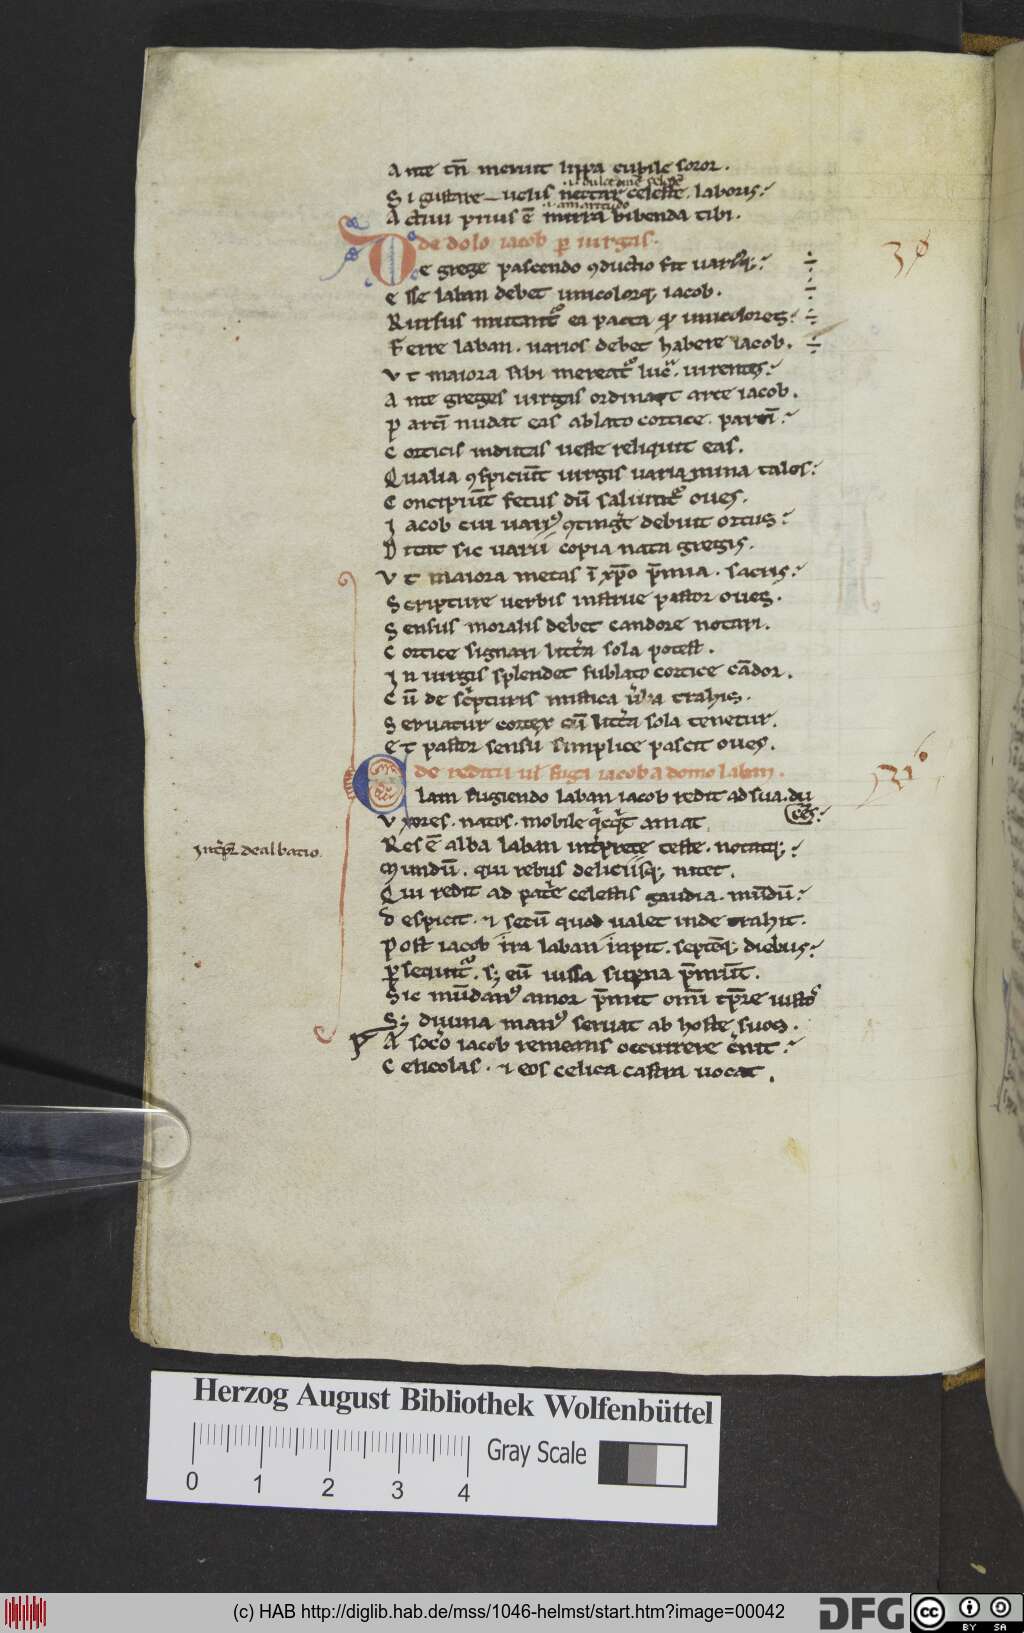 Ante tn̄ meruit lippa cubile soror.
.i. dulcedinē celestē
Si gustare uelis nectar celeste. laboris:
.i. amaritudo
Actiui prius ē mirra bibenda tibi.
de dolo iacob ꝑ uirgas.
De grege pascendo ꝯductio fit uariusq;:
30
esse laban debet unicolorq; iacob.
Rursus mutant᷑ ea pacta qr unicolores:
Ferre laban. uarios debet habere iacob.
Vt maiora sibi mereat᷑ lucͣ. uirentes:
Ante greges uirgas ordinat arte iacob.
partī nudat eas ablato cortice. partī:
Corticis indutas ueste reliquit eas.
Qualia ꝯspiciūt uirgis uaria nina tales:
Concipiūt fetus dū saliunt᷑ oues.
Iacob cui uariꝰ ꝯtingēt debuit ortus:
Ditat sic uarii copia nata gregis.
Vt maiora metas ī xp̄o p̄mia. sacris:
Scripture uerbis instrue pastor oues.
Sensus moralis debet candore notari.
Cortice signari litt̄a sola potest.
In uirgis splendet sublato cortice cādor.
Cū de sc͛pturis mistica ūba trahis.
Seruatur cortex cū litt̄a sola tenetur.
et pastor sensu simplice pascit oues.
de reditu ul̓ fuga iacob a domo laban.
31
Clam fugiendo laban iacob redit ad sua. du
ces:
Vxores. natos. mobile q͛cq͛d amat
Int͛p͛. dealbatio.
Res ē alba laban int͛prete teste. notatq;:
Mundū. qui rebus deliciisq; nitet.
Qui redit ad pat͛e celestis gaudia. mūdū:
despicit. ⁊ secū quod ualet inde trahit.
Post iacob ira laban irapit. septēq; diebus:
ꝑsequit᷑. sꝫ eū iussa supna p̄mūt.
Sic mūdanꝰ amor p̄mit omī tp̄re iustos
Sꝫ diuina manꝰ seruat ab hoste suos.
P A soc͛o iacob remeans occurrere c͛nit:
Celicolas. ⁊ eos celica castra uocat.
Herzog August Bibliothek Wolfenbüttel
0 1 2 3 4
Gray Scale
(c) HAB http://diglib.hab.de/mss/1046-helmst/start.htm?image=00042
DFG cc BY SA